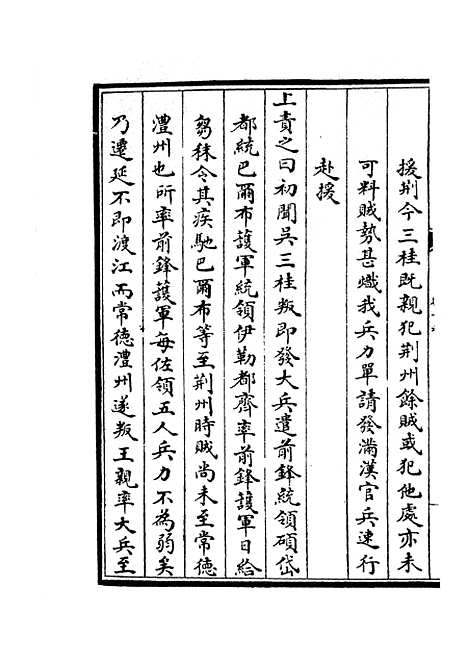 援荆今三桂既親犯荆州餘賊或犯他處亦未
可料賊勢甚熾我兵力單請發滿漢官兵速行
赴援
上責之曰初聞吳三桂叛即發大兵遣前鋒統領碩岱
都統巴爾布護軍統領伊勒都齊率前鋒護軍日給
芻秣令其疾馳巴爾布等至荆州時賊尚未至常德
澧州也所率前鋒護軍每佐領五人兵力不為弱矣
乃遷延不即渡江而常德澧州遂叛王親率大兵至